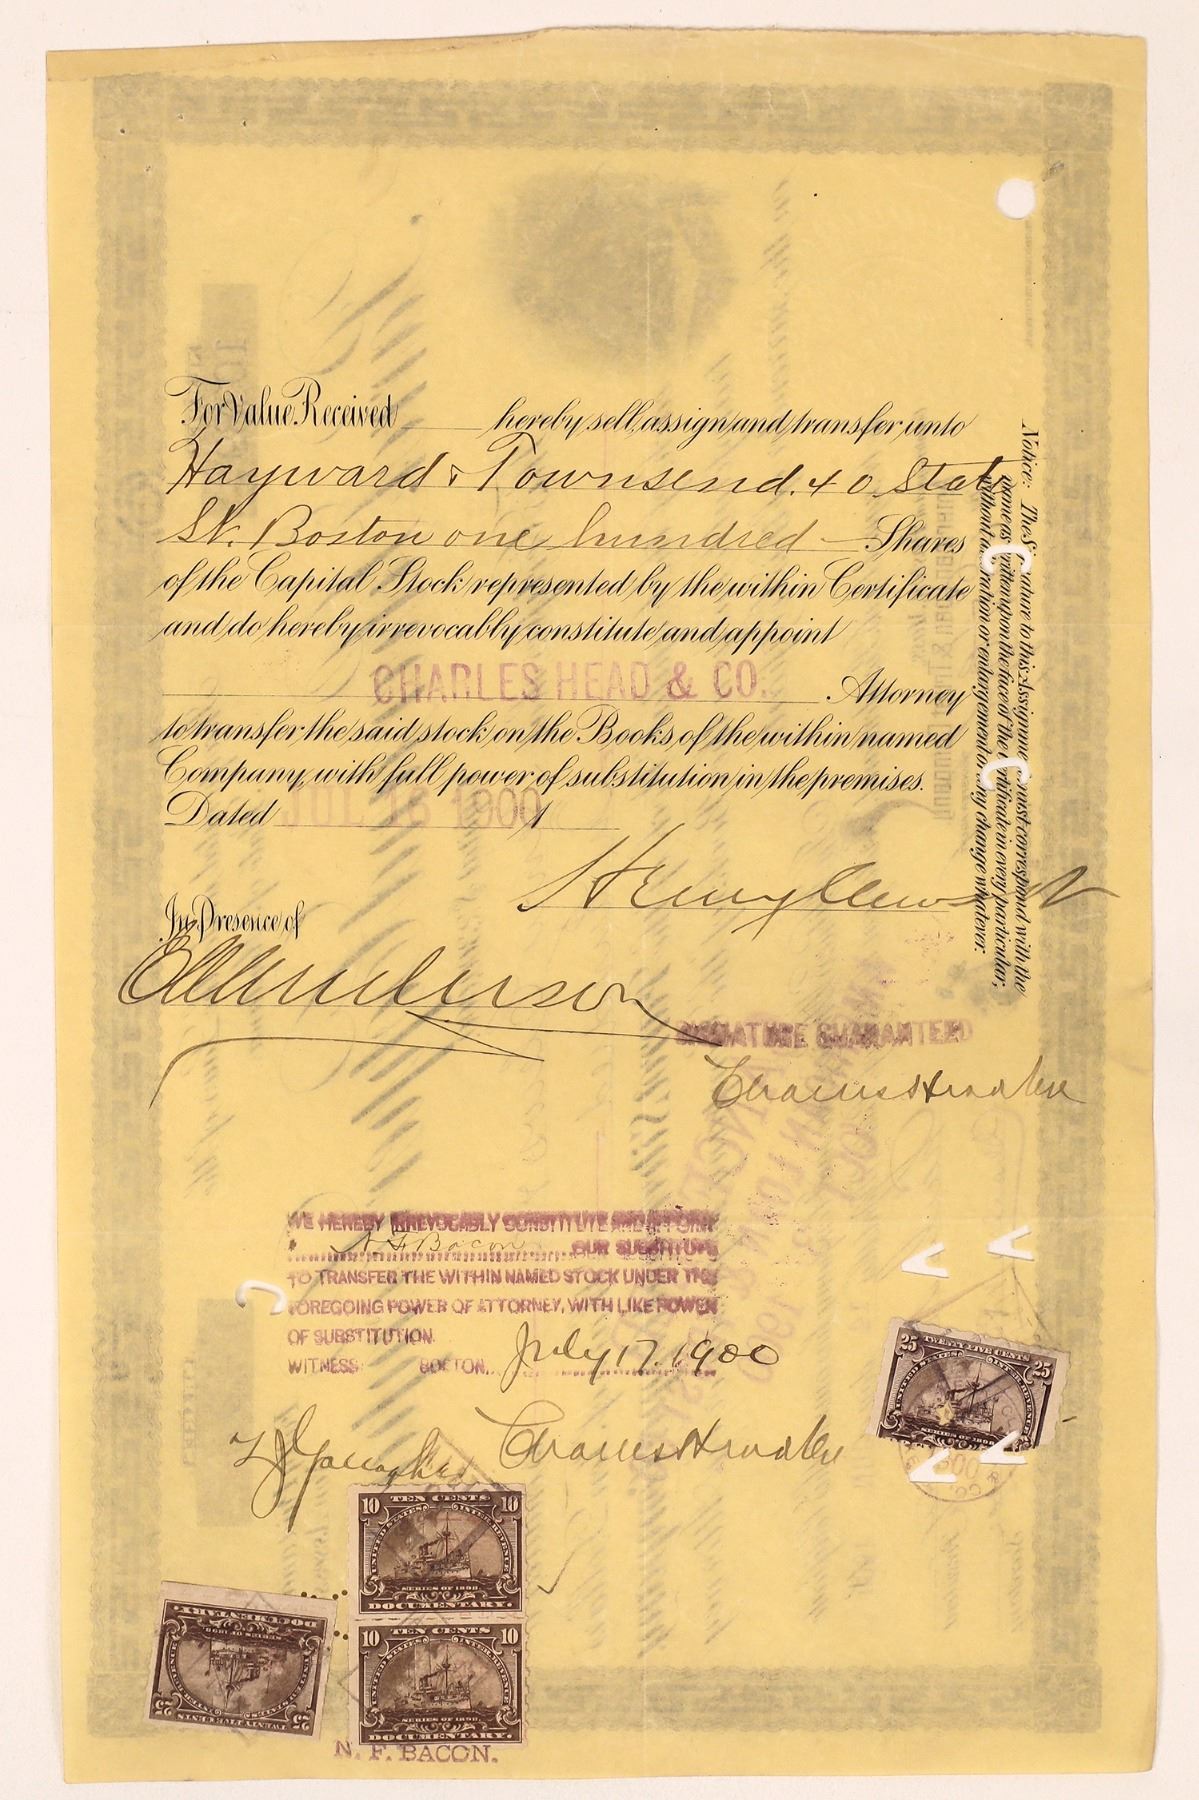 For Value Received hereby sell, assign and transfer, unto
Hayward & Townsend. 40 State
St. Boston one hundred — Shares
of the Capital Stock represented by the within Certificate
and do hereby irrevocably constitute and appoint
CHARLES HEAD & CO. Attorney
to transfer the said stock on the Books of the within named
Company, with full power of substitution in the premises.
Dated JUL 13 1900 1
Henry Clews
In Presence of
Anderson
SIGNATURE GUARANTEED
Charles Head & Co
Notice: The Signature to this Assignment must correspond with the
name as written upon the face of the Certificate in every particular,
without alteration or enlargement or any change whatever.
WE HEREBY IRREVOCABLY CONSTITUTE AND APPOINT
N F Bacon OUR SUBSTITUTE
TO TRANSFER THE WITHIN NAMED STOCK UNDER THE
FOREGOING POWER OF ATTORNEY, WITH LIKE POWER
OF SUBSTITUTION.
WITNESS BOSTON, July 17. 1900
Charles Head & Co
25 TWENTY FIVE CENTS 25
UNITED STATES INTER. REVENUE
SERIES OF 1898
10 TEN CENTS 10
UNITED STATES INTER. REVENUE
SERIES OF 1898.
DOCUMENTARY.
10 TEN CENTS 10
UNITED STATES INTER. REVENUE
SERIES OF 1898.
DOCUMENTARY.
25 TWENTY FIVE CENTS 25
UNITED STATES INTER. REVENUE
SERIES OF 1898.
DOCUMENTARY.
N. F. BACON.